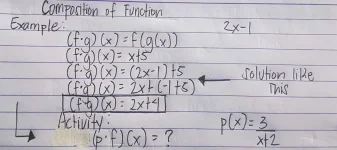 Composition of Function
Example: 2x-1
(f·g)(x) = f(g(x))
(f·g)(x) = x+5
(f·g)(x) = (2x-1)+5
(f·g)(x) = 2x+(-1+5)
(f·g)(x) = 2x+4
solution like
this
Activity:
(p·f)(x) = ?
p(x) = 3
x+2